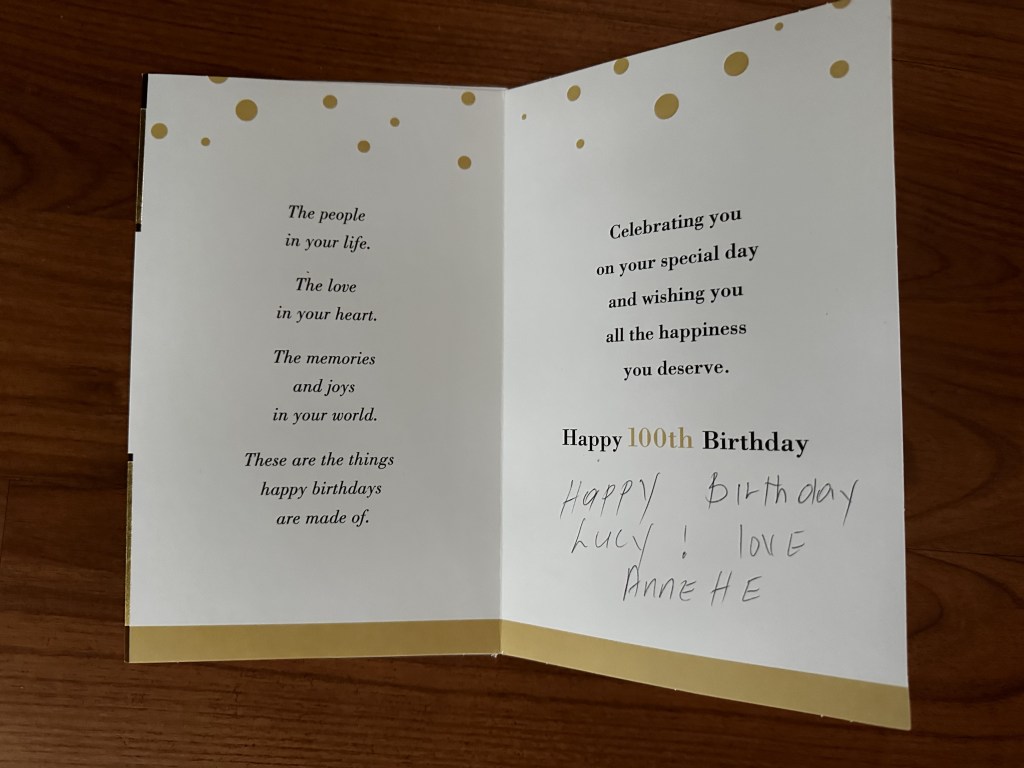 The people
in your life.
The love
in your heart.
The memories
and joys
in your world.
These are the things
happy birthdays
are made of.
Celebrating you
on your special day
and wishing you
all the happiness
you deserve.
Happy 100th Birthday
Happy Birthday
Lucy! love
Annette